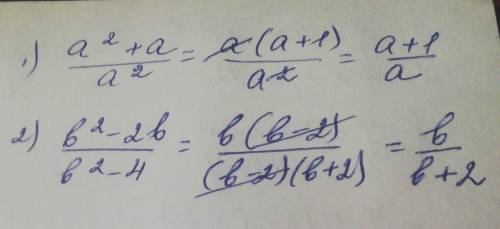 1) a² + a / a² = a(a+1) / a² = a+1 / a
2) b² - 2b / b² - 4 = b(b-2) / (b-2)(b+2) = b / b+2